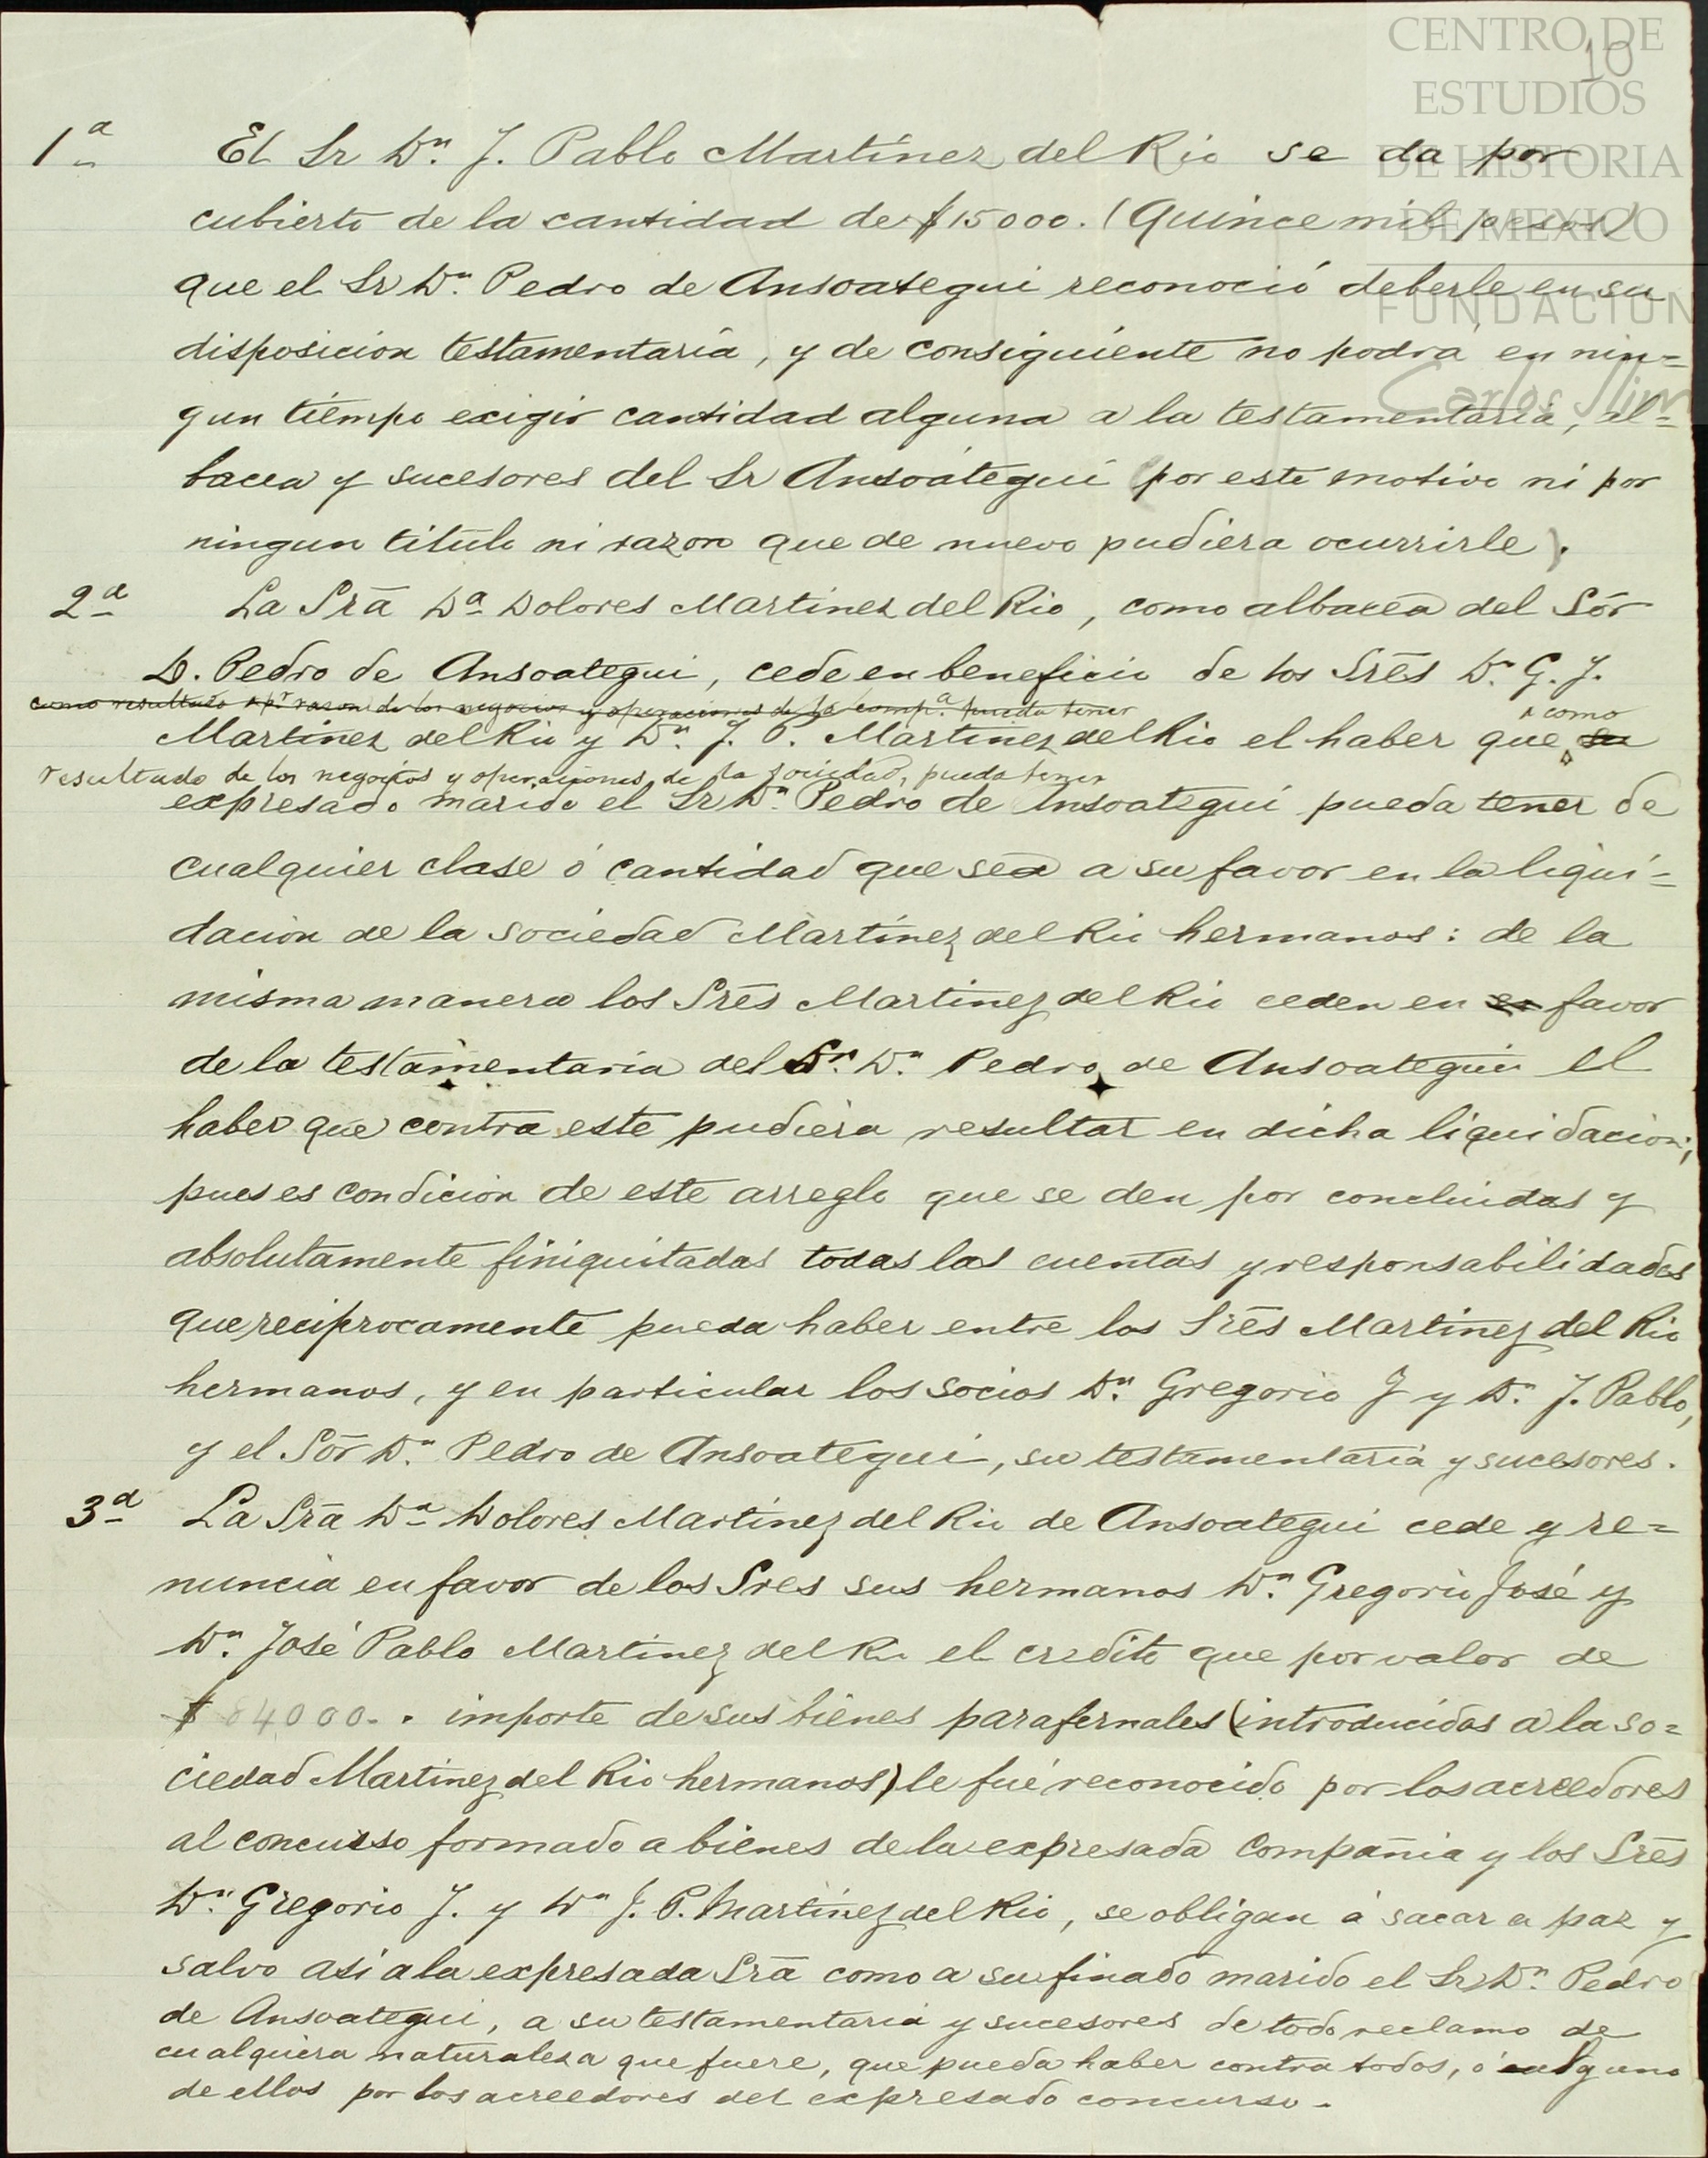 CENTRO DE
ESTUDIOS
DE HISTORIA
DE MEXICO
FUNDACION
Carlos Slim
10
1ª El Sr Dn. J. Pablo Martínez del Rio se da por
cubierto de la cantidad de $15000. (Quince mil pesos)
que el Sr Dn. Pedro de Ansoategui reconoció deberle en su
disposicion testamentaria, y de consiguiente no podrá en nin=
gun tiempo exigir cantidad alguna a la testamentaria, al=
bacea y sucesores del Sr Ansoátegui (por este motivo ni por
ningun titulo ni razon que de nuevo pudiera ocurrirle).
2ª La Srā Dª Dolores Martinez del Rio, como albacea del Sōr
D. Pedro de Ansoategui, cede en beneficio de los Srēs Dn. G. J.
como resultado o pr. razon de los negocios y operaciones de la comp.ª pueda tener
como
Martinez del Rio y Dn. J. P. Martinez del Rio el haber que su
resultado de los negocios y operaciones de la sociedad, pueda tener
expresado marido el Sr Dn. Pedro de Ansoategui pueda tener de
cualquier clase ó cantidad que sea a su favor en la liqui=
dacion de la sociedad Martínez del Rio hermanos: de la
misma manera los Srēs Martinez del Rio ceden en en favor
de la testamentaria del Sr. Dn. Pedro de Ansoategui el
haber que contra este pudiera resultar en dicha liquidacion;
pues es condicion de este arreglo que se den por concluidas y
absolutamente finiquitadas todas las cuentas y responsabilidades
que reciprocamente pueda haber entre los Srēs Martinez del Rio
hermanos, y en particular los socios Dn. Gregorio J y Dn. J. Pablo,
y el Sōr Dn. Pedro de Ansoategui, su testamentaria y sucesores.
3ª La Srā Dª Dolores Martínez del Rio de Ansoategui cede y re=
nuncia en favor de los Sres sus hermanos Dn. Gregorio José y
Dn. José Pablo Martinez del Rio el credito que por valor de
$ 84000. . importe de sus bienes parafernales (introducidos a la so=
ciedad Martinez del Rio hermanos) le fué reconocido por los acreedores
al concurso formado a bienes de la expresada Compañia y los Srēs
Dn. Gregorio J. y Dn J. P. Martínez del Rio, se obligan á sacar a paz y
salvo asi a la expresada Srā como a su finado marido el Sr Dn. Pedro
de Ansoategui, a su testamentaria y sucesores de todo reclamo de
cualquiera naturaleza que fuere, que pueda haber contra todos, ó alguno
de ellos por los acreedores del expresado concurso.